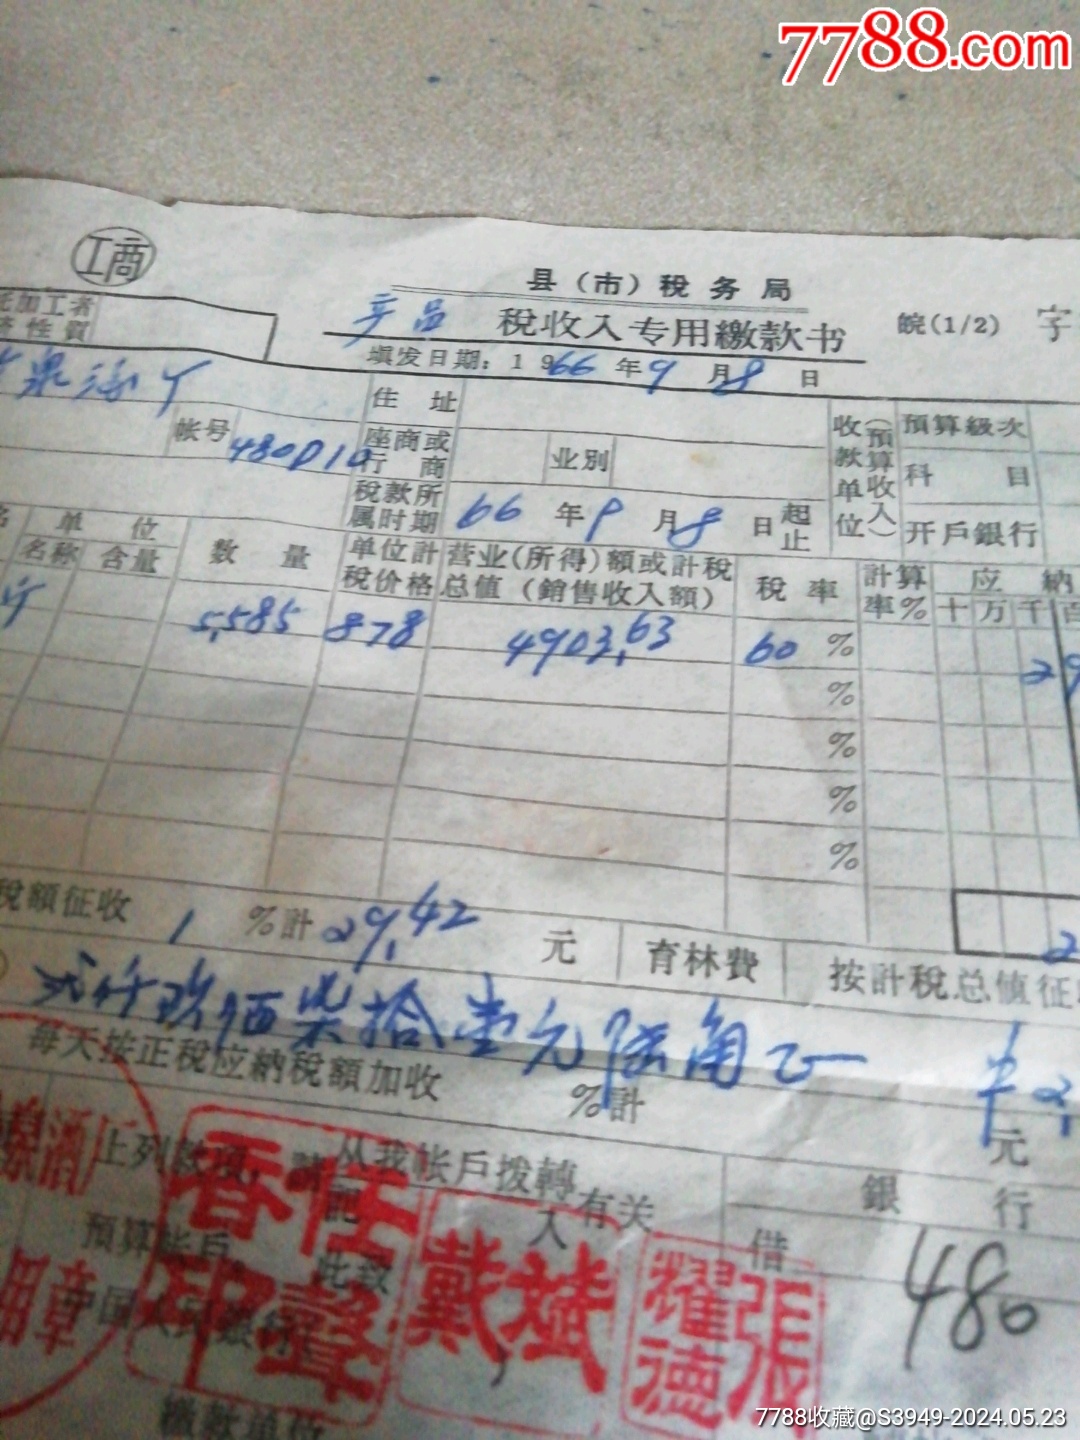 7788.com
工商
县（市）税务局
产品 税收入专用缴款书
皖(1/2) 字
填发日期：1966年9月8日
托加工者
性質
泉酒厂
住址
帐号 480010
座商或行商
业別
收款单位(預算收入)
預算級次
科目
开戶銀行
税款所属时期 66年9月8日起止
单位
名称 含量
数量
单位計税价格
营业(所得)額或計税总值(銷售收入額)
税率
計算率%
应納
十万千百
5,585 878 4903.63 60% 29
%
%
%
%
税額征收 1 %計 29.42 元
育林費
按計税总值征
弍仟玖佰柒拾壹元陆角正
每天按正税应納税額加收 %計 元
上列款項，請从我帐戶拨轉
記入有关
預算帐戶
此致
中国人民銀行
銀行
借
480
繳款单位
泉酒厂
用章
任聲香印
戴斌
張耀德
7788收藏@S3949-2024.05.23